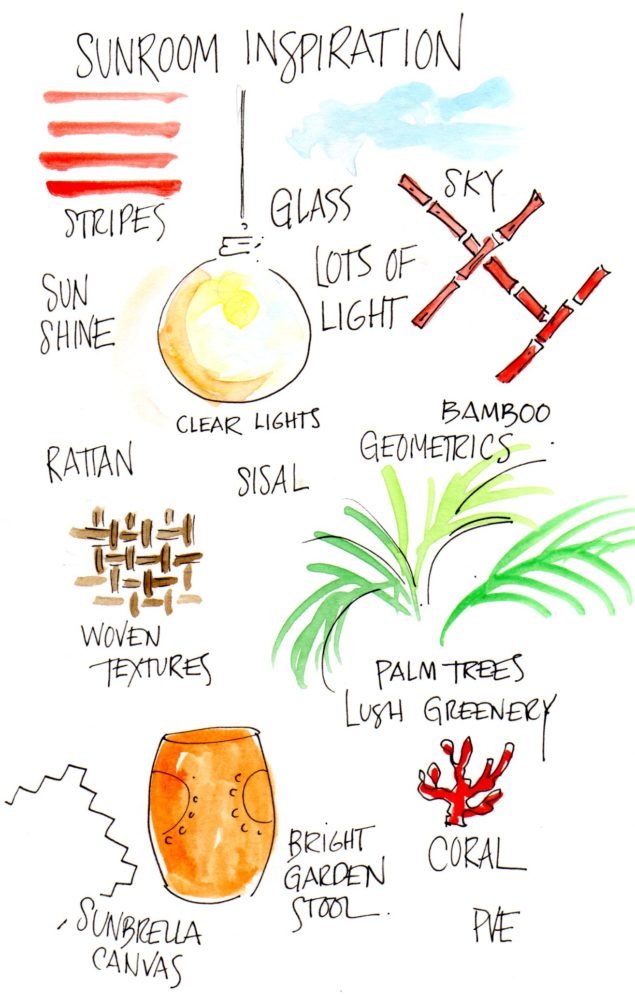 SUNROOM INSPIRATION
STRIPES
GLASS
SKY
SUN
SHINE
LOTS OF
LIGHT
CLEAR LIGHTS
BAMBOO
GEOMETRICS
RATTAN
SISAL
WOVEN
TEXTURES
PALM TREES
LUSH GREENERY
BRIGHT
GARDEN
STOOL
CORAL
SUNBRELLA
CANVAS
PVE